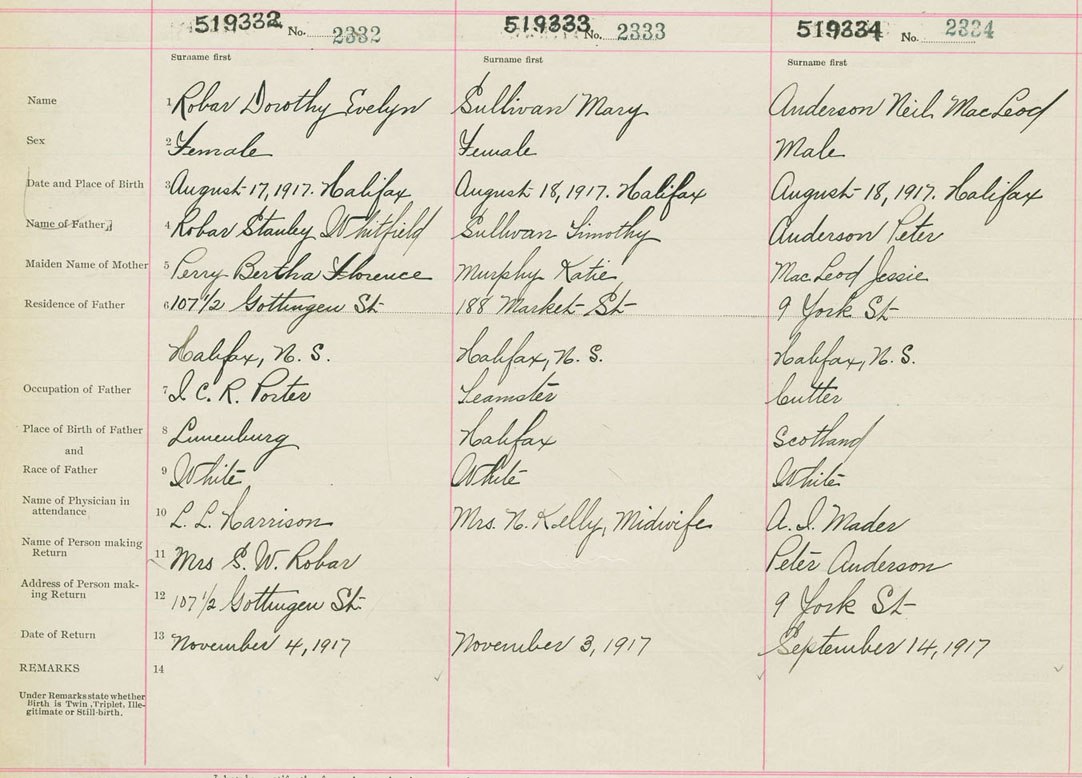 519332 No. 2332 519333 No. 2333 519334 No. 2334
Surname first Surname first Surname first
Name 1 Robar Dorothy Evelyn Sullivan Mary Anderson Neil MacLeod
Sex 2 Female Female Male
Date and Place of Birth 3 August 17, 1917. Halifax August 18, 1917. Halifax August 18, 1917. Halifax
Name of Father 4 Robar Stanley Whitfield Sullivan Timothy Anderson Peter
Maiden Name of Mother 5 Perry Bertha Florence Murphy Katie MacLeod Jessie
Residence of Father 6 107 1/2 Gottingen St 188 Market St 9 York St
Halifax, N. S. Halifax, N. S. Halifax, N. S.
Occupation of Father 7 I. C. R. Porter Teamster Cutter
Place of Birth of Father 8 Lunenburg Halifax Scotland
and
Race of Father 9 White White White
Name of Physician in
attendance 10 L. L. Harrison Mrs. N. Kelly, Midwife A. I. Mader
Name of Person making
Return 11 Mrs S. W. Robar Peter Anderson
Address of Person mak-
ing Return 12 107 1/2 Gottingen St. 9 York St
Date of Return 13 November 4, 1917 November 3, 1917 September 14, 1917
REMARKS 14
Under Remarks state whether
Birth is Twin, Triplet, Ille-
gitimate or Still-birth.